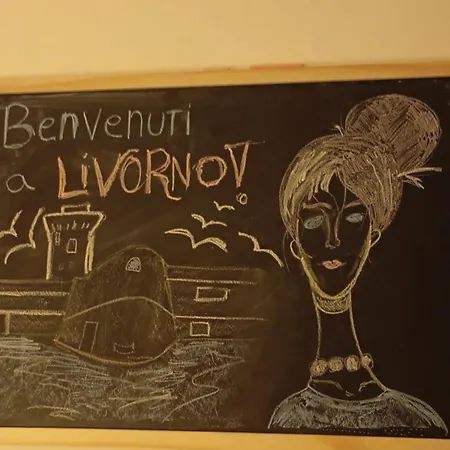 Benvenuti
a LivORNO!